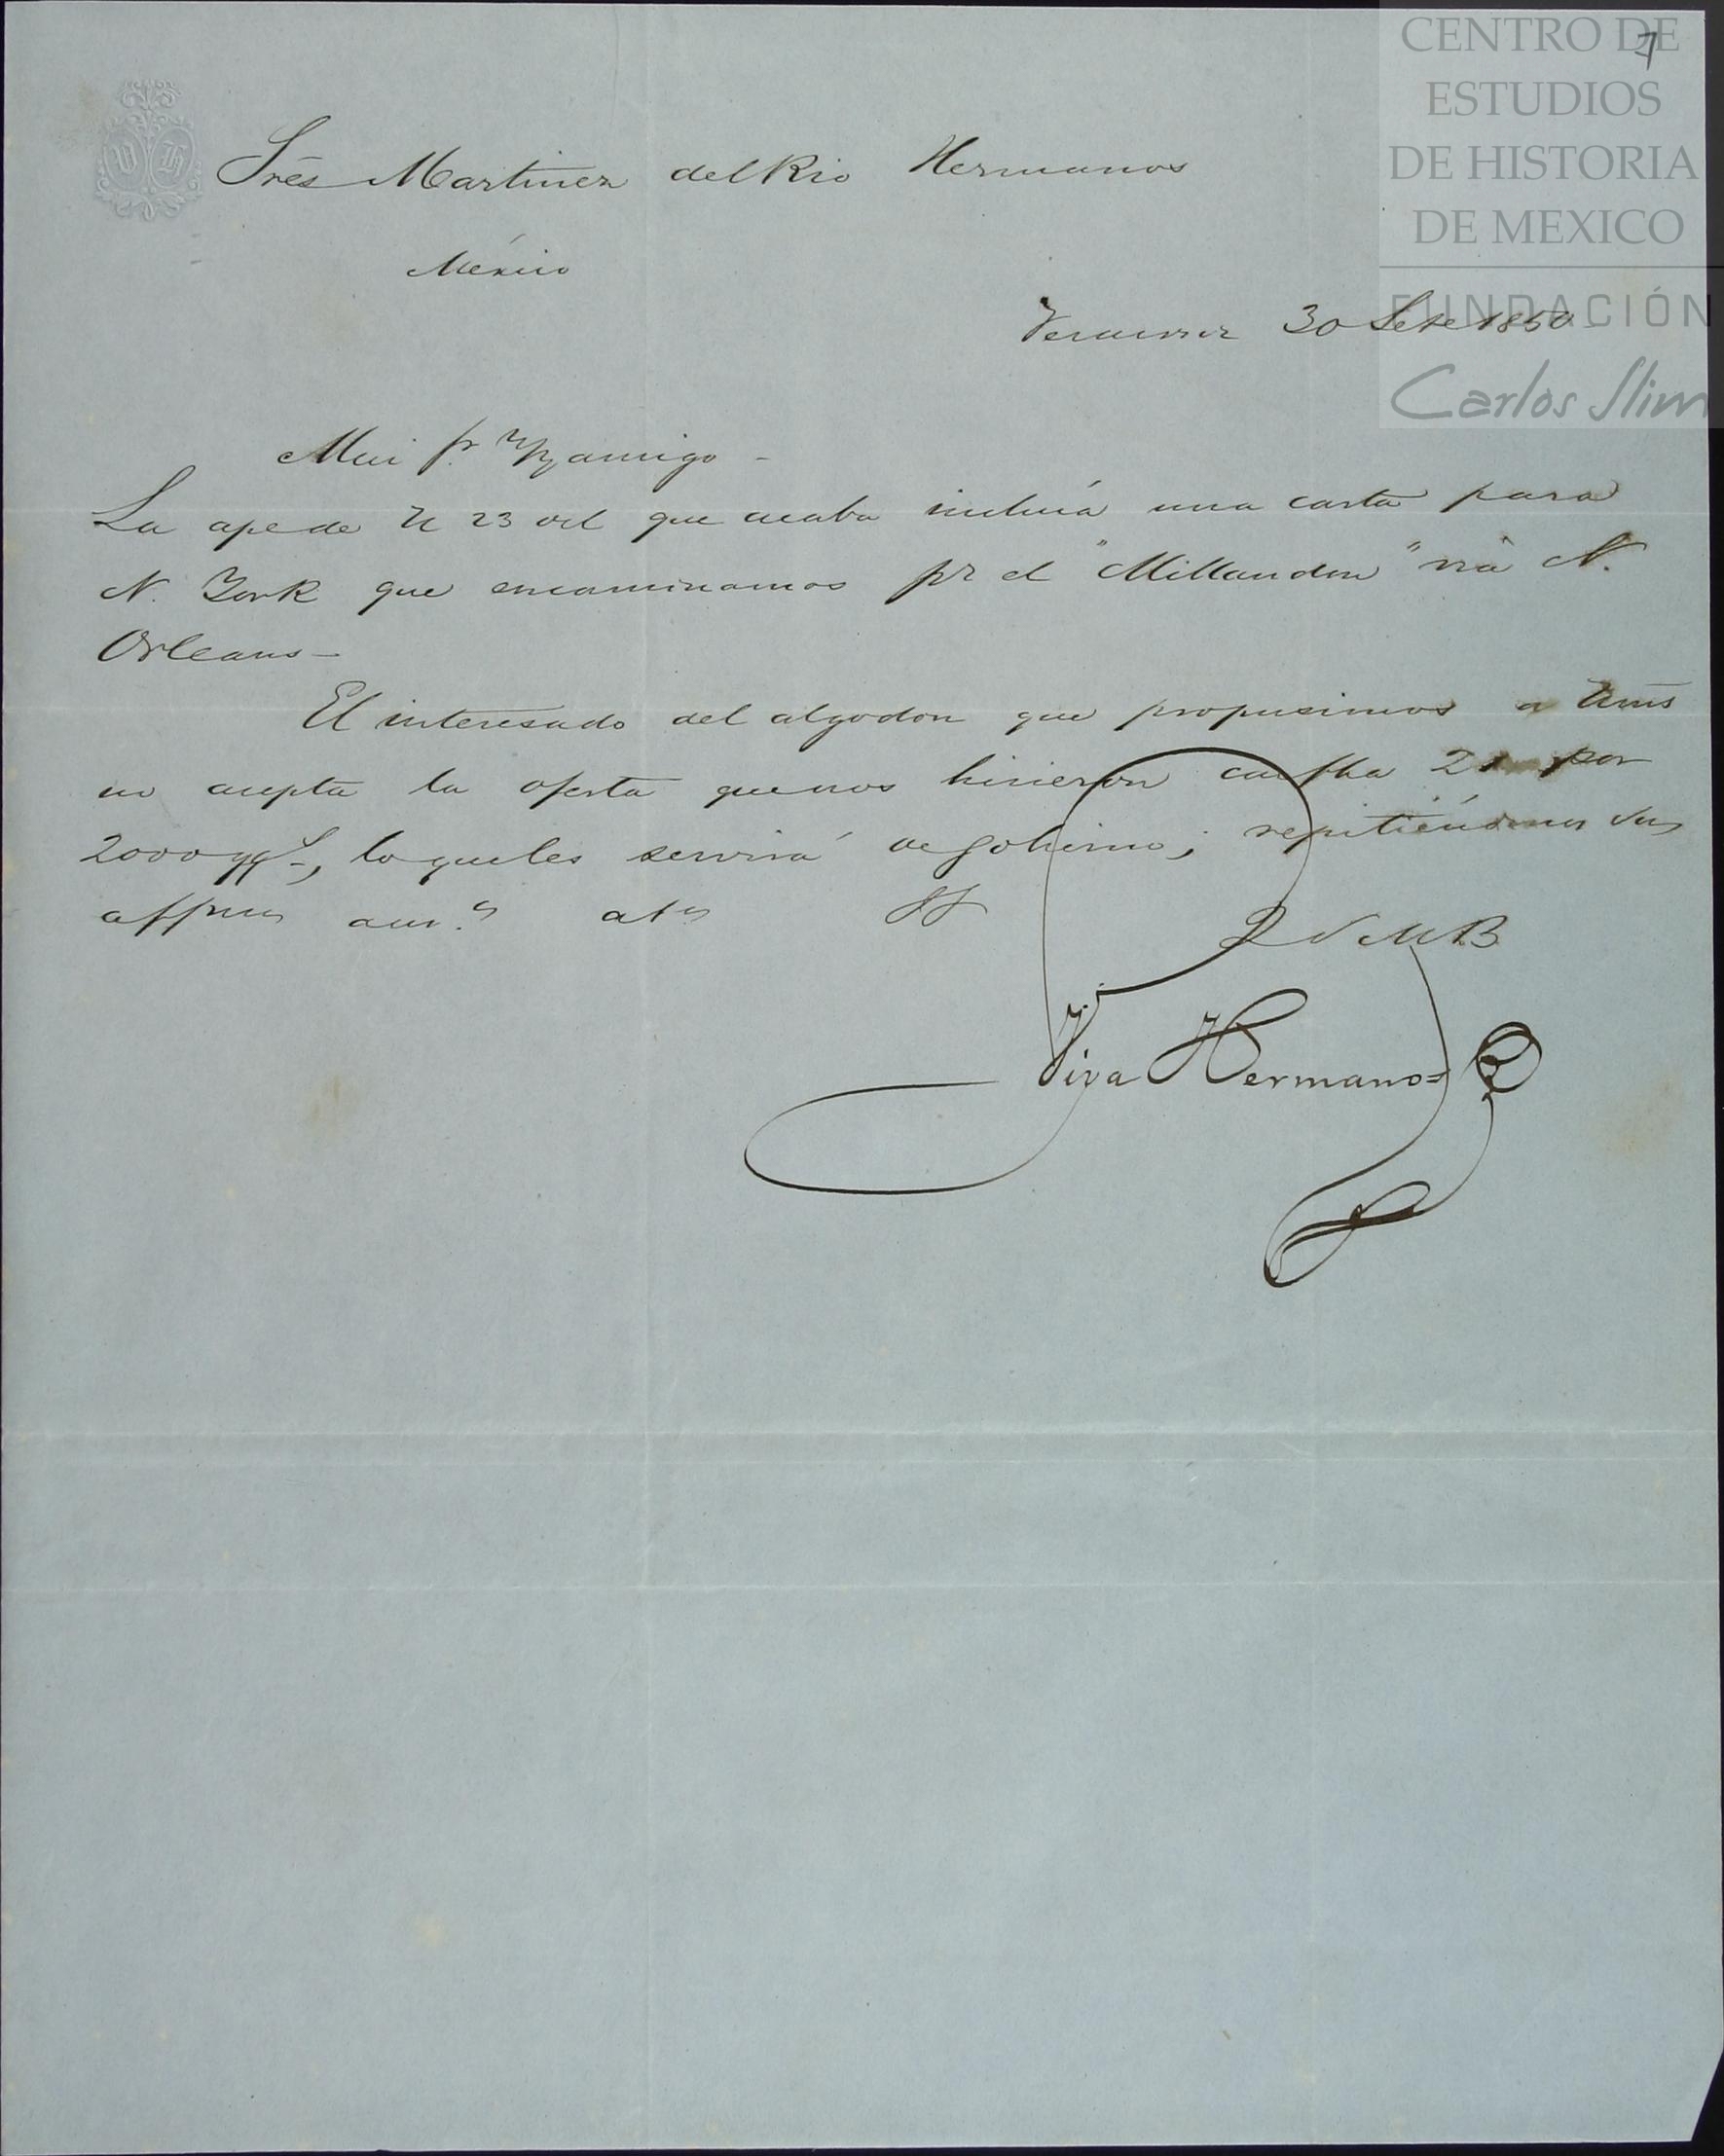 CENTRO DE
ESTUDIOS
DE HISTORIA
DE MEXICO
FUNDACIÓN
Carlos Slim
7
Srēs Martinez del Rio Hermanos
México
Veracruz 30 Sete 1850
Mui amigo -
La de 23 del que acaba incluía una carta para
N. York que encaminamos pr el "Millaudon" via N.
Orleans -
El interesado del algodon que propusimos a Ums
no acepta la oferta que nos hicieron con fha 21 por
2000 qqs, lo que les servirá de gobierno; repitiéndonos sus
affmos am.s ats SS
Q S M B
Viya Hermanos